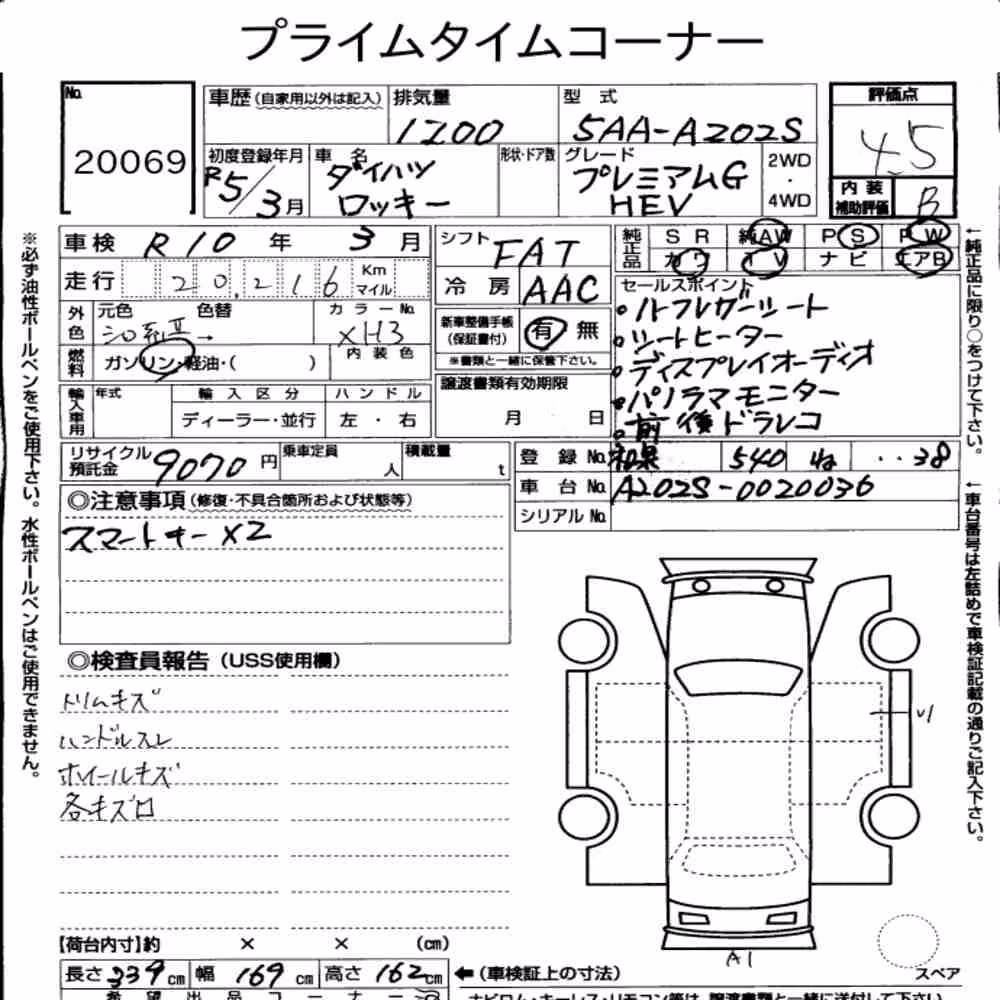 プライムタイムコーナー
No.
20069
車歴 (自家用以外は記入)
排気量
1200
型 式
5AA-A202S
評価点
4.5
初度登録年月
R5/3月
車 名
ダイハツ
ロッキー
形状・ドア数
グレード
プレミアムG
HEV
2WD
・
4WD
内 装
補助評価
B
車検 R10 年 3 月
シフト FAT
純正品
SR 純AW PS PW
カワ TV ナビ エアB
走行 20,216 Km マイル
冷 房 AAC
セールスポイント
・ハーフレザーシート
・シートヒーター
・ディスプレイオーディオ
・パノラマモニター
・前後ドラレコ
外色
元色 色替 カラーNo.
シロ系Ⅱ→ XH3
新車整備手帳
(保証書付)
有 無
※書類と一緒に保管下さい。
燃料
ガソリン・軽油・( )
内 装 色
輸入車用
年式
輸 入 区 分
ハ ン ド ル
ディーラー・並行
左 ・ 右
譲渡書類有効期限
月 日
リサイクル
預託金
9070円
乗車定員
人
積載量
t
登 録 No. 和泉 540 ね ‥38
車 台 No. A202S-0020036
シリアル No.
◎注意事項 (修復・不具合箇所および状態等)
スマートキー×2
◎検査員報告 (USS使用欄)
トリムキズ
ハンドルスレ
ホイールキズ
各キズ口
A1
スペア
【荷台内寸】約 × × (cm)
長さ 339 cm 幅 169 cm 高さ 162 cm
←(車検証上の寸法)
希 望 出 品 コ ー ナ ー
※必ず油性ボールペンをご使用下さい。水性ボールペンはご使用できません。
←純正品に限り○をつけて下さい。
←車台番号は左詰めで車検証記載の通りご記入下さい。